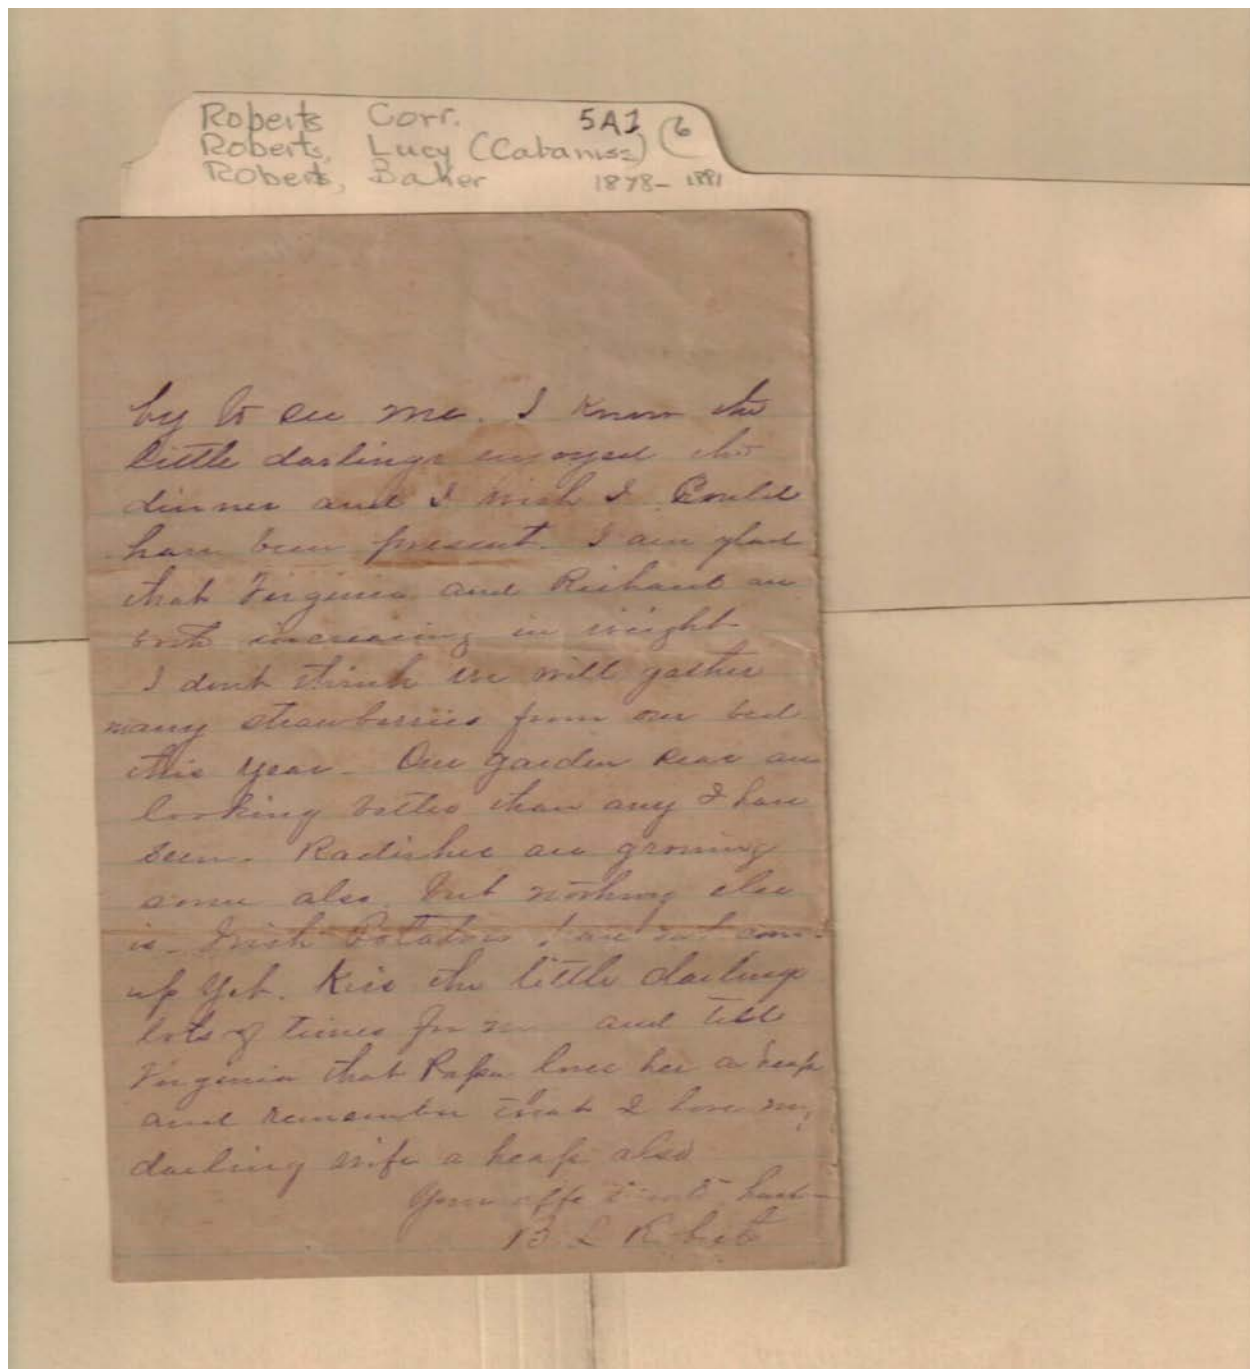 Roberts Corr. 5A1 (6
Roberts, Lucy (Cabaniss)
Roberts, Baker 1878-1881
by to see me. I know the
little darlings enjoyed the
dinner and I wish I Could
have been present. I am glad
that Virginia and Richard are
both increasing in weight
I dont think we will gather
many strawberries from our bed
this year - Our garden peas are
looking better than any I have
seen. Radishes are growing
some also, but nothing else
is - Irish Potatoes have not come
up yet. Kiss the little darlings
lots of times for me and tell
Virginia that Papa loves her a heap
and remember that I love my
darling wife a heap also
Your affectionate husb-
B L Roberts